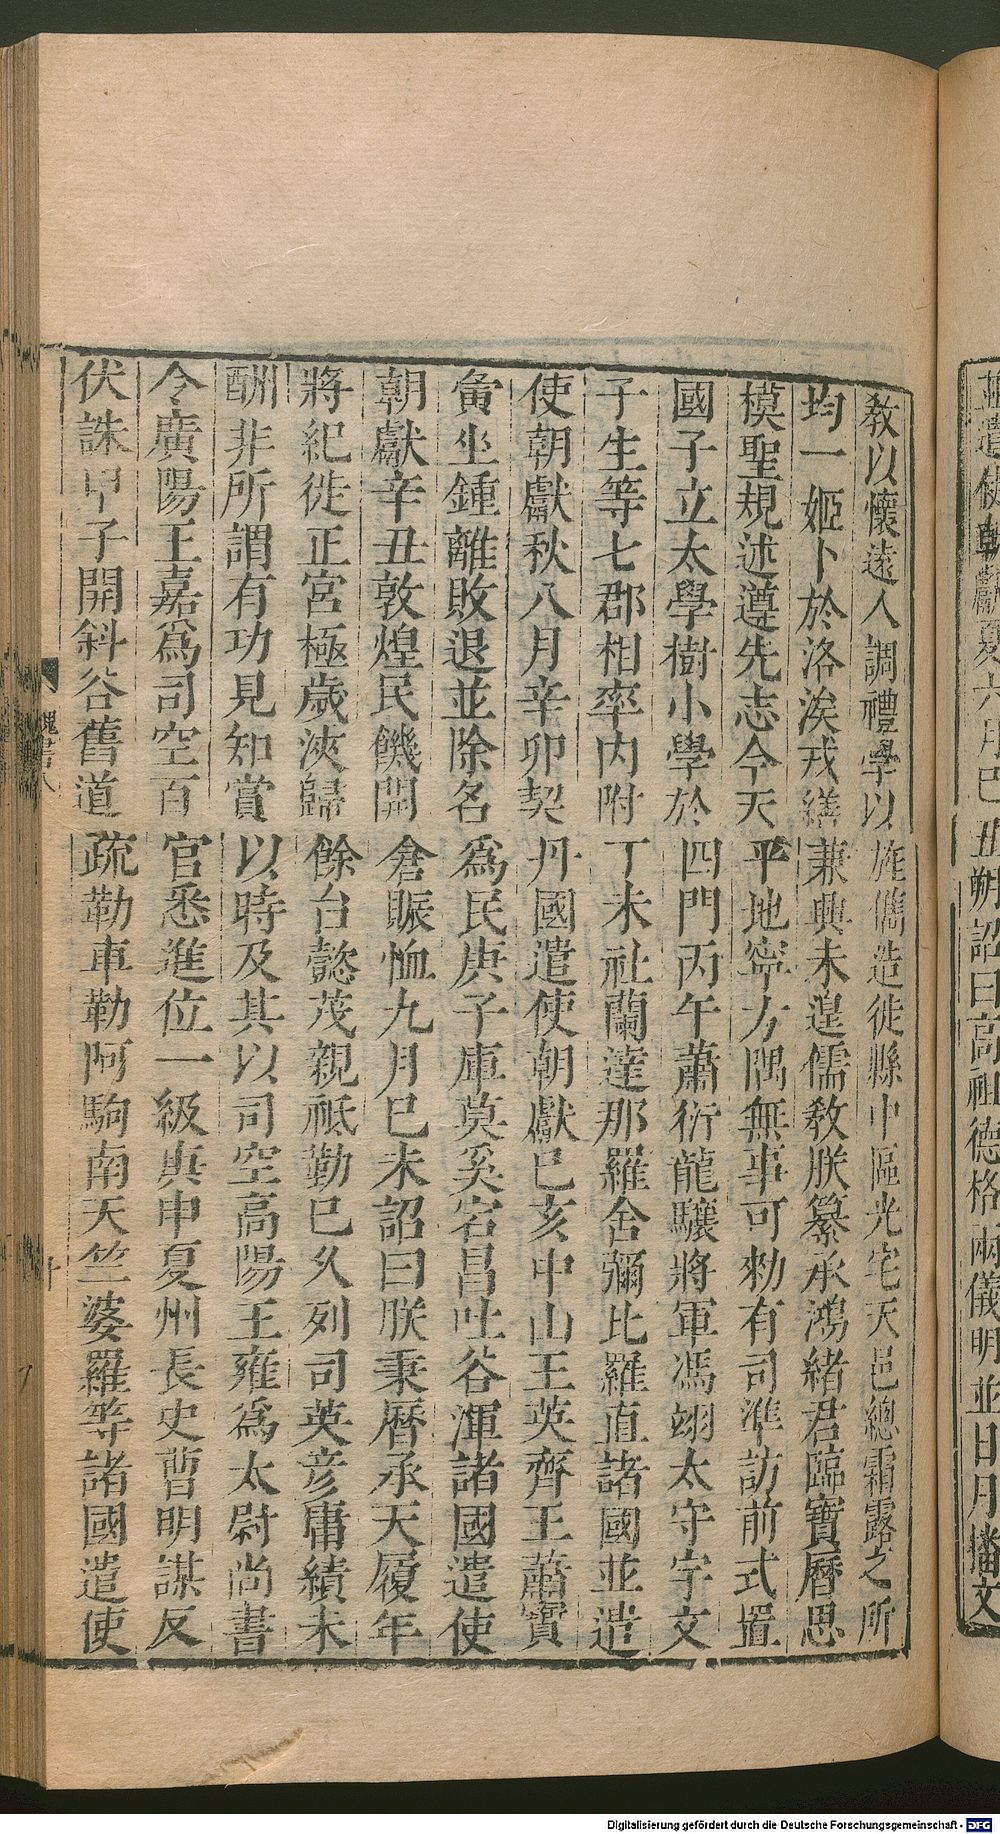 並遣使朝獻夏六月己丑朔詔曰高祖德格兩儀明並日月播文
教以懷遠人調禮學以旌儁造徙縣中區光宅天邑總霜露之所
均一姬卜於洛涘戎繕兼興未遑儒教朕纂承鴻緒君臨寶曆思
模聖規述遵先志今天平地寧方隅無事可勑有司準訪前式置
國子立太學樹小學於四門丙午蕭衍龍驤將軍馮翊太守宇文
子生等七郡相率內附丁未社蘭達那羅舍彌比羅直諸國並遣
使朝獻秋八月辛卯契丹國遣使朝獻己亥中山王英齊王蕭寶
夤坐鍾離敗退並除名為民庚子庫莫奚宕昌吐谷渾諸國遣使
朝獻辛丑敦煌民饑開倉賑恤九月己未詔曰朕秉曆承天履年
將紀徙正宮極歲浹歸餘台懿茂親祗勤已久列司英彥庸績未
酬非所謂有功見知賞以時及其以司空高陽王雍為太尉尚書
令廣陽王嘉為司空百官悉進位一級庚申夏州長史曹明謀反
伏誅甲子開斜谷舊道疏勒車勒阿駒南天竺婆羅等諸國遣使
魏書八
十
Digitalisierung gefördert durch die Deutsche Forschungsgemeinschaft - DFG